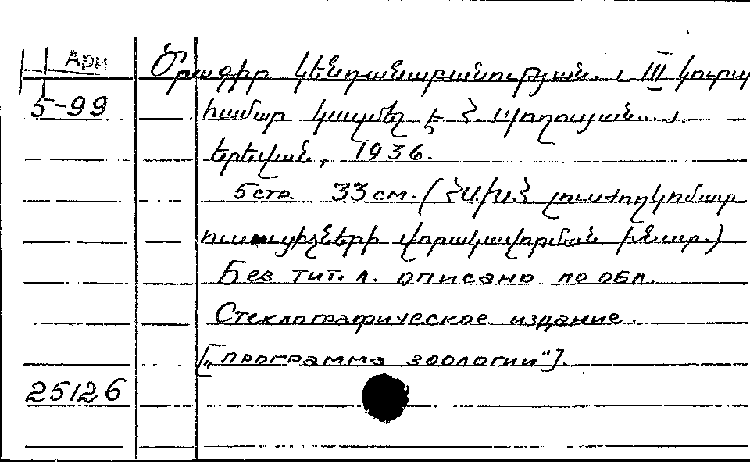 Арм
Ծրագիր կենդանաբանության. III կուրսի
5-99
համար կազմեց է Հ.
Երեվան, 1936.
5 стр. 33 см. (ՀՍԽՀ լուսժողկոմատ
ուսուցիչների վորակավորման ինստ.)
Без тит. л. описано по обл.
Стеклографическое издание.
["программа зоологии"].
25126